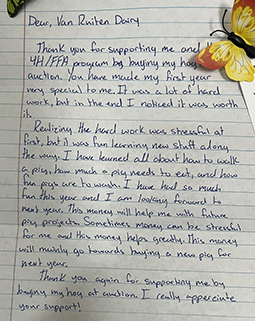 Dear, Van Ruiten Dairy
Thank you for supporting me and
4H/FFA program by buying my hog
auction. You have made my first year
very special to me. It was a lot of hard
work, but in the end I noticed it was worth
it.
Realizing the hard work was stressful at
first, but it was fun learning new stuff along
the way. I have learned all about how to walk
a pig, how much a pig needs to eat, and how
fun pigs are to wash. I have had so much
fun this year and I am looking forward to
next year. This money will help me with future
pig projects. Sometimes money can be stressful
for me and this money helps greatly. This money
will mainly go towards buying a new pig for
next year.
Thank you again for supporting me by
buying my hog at auction. I really appreciate
your support!